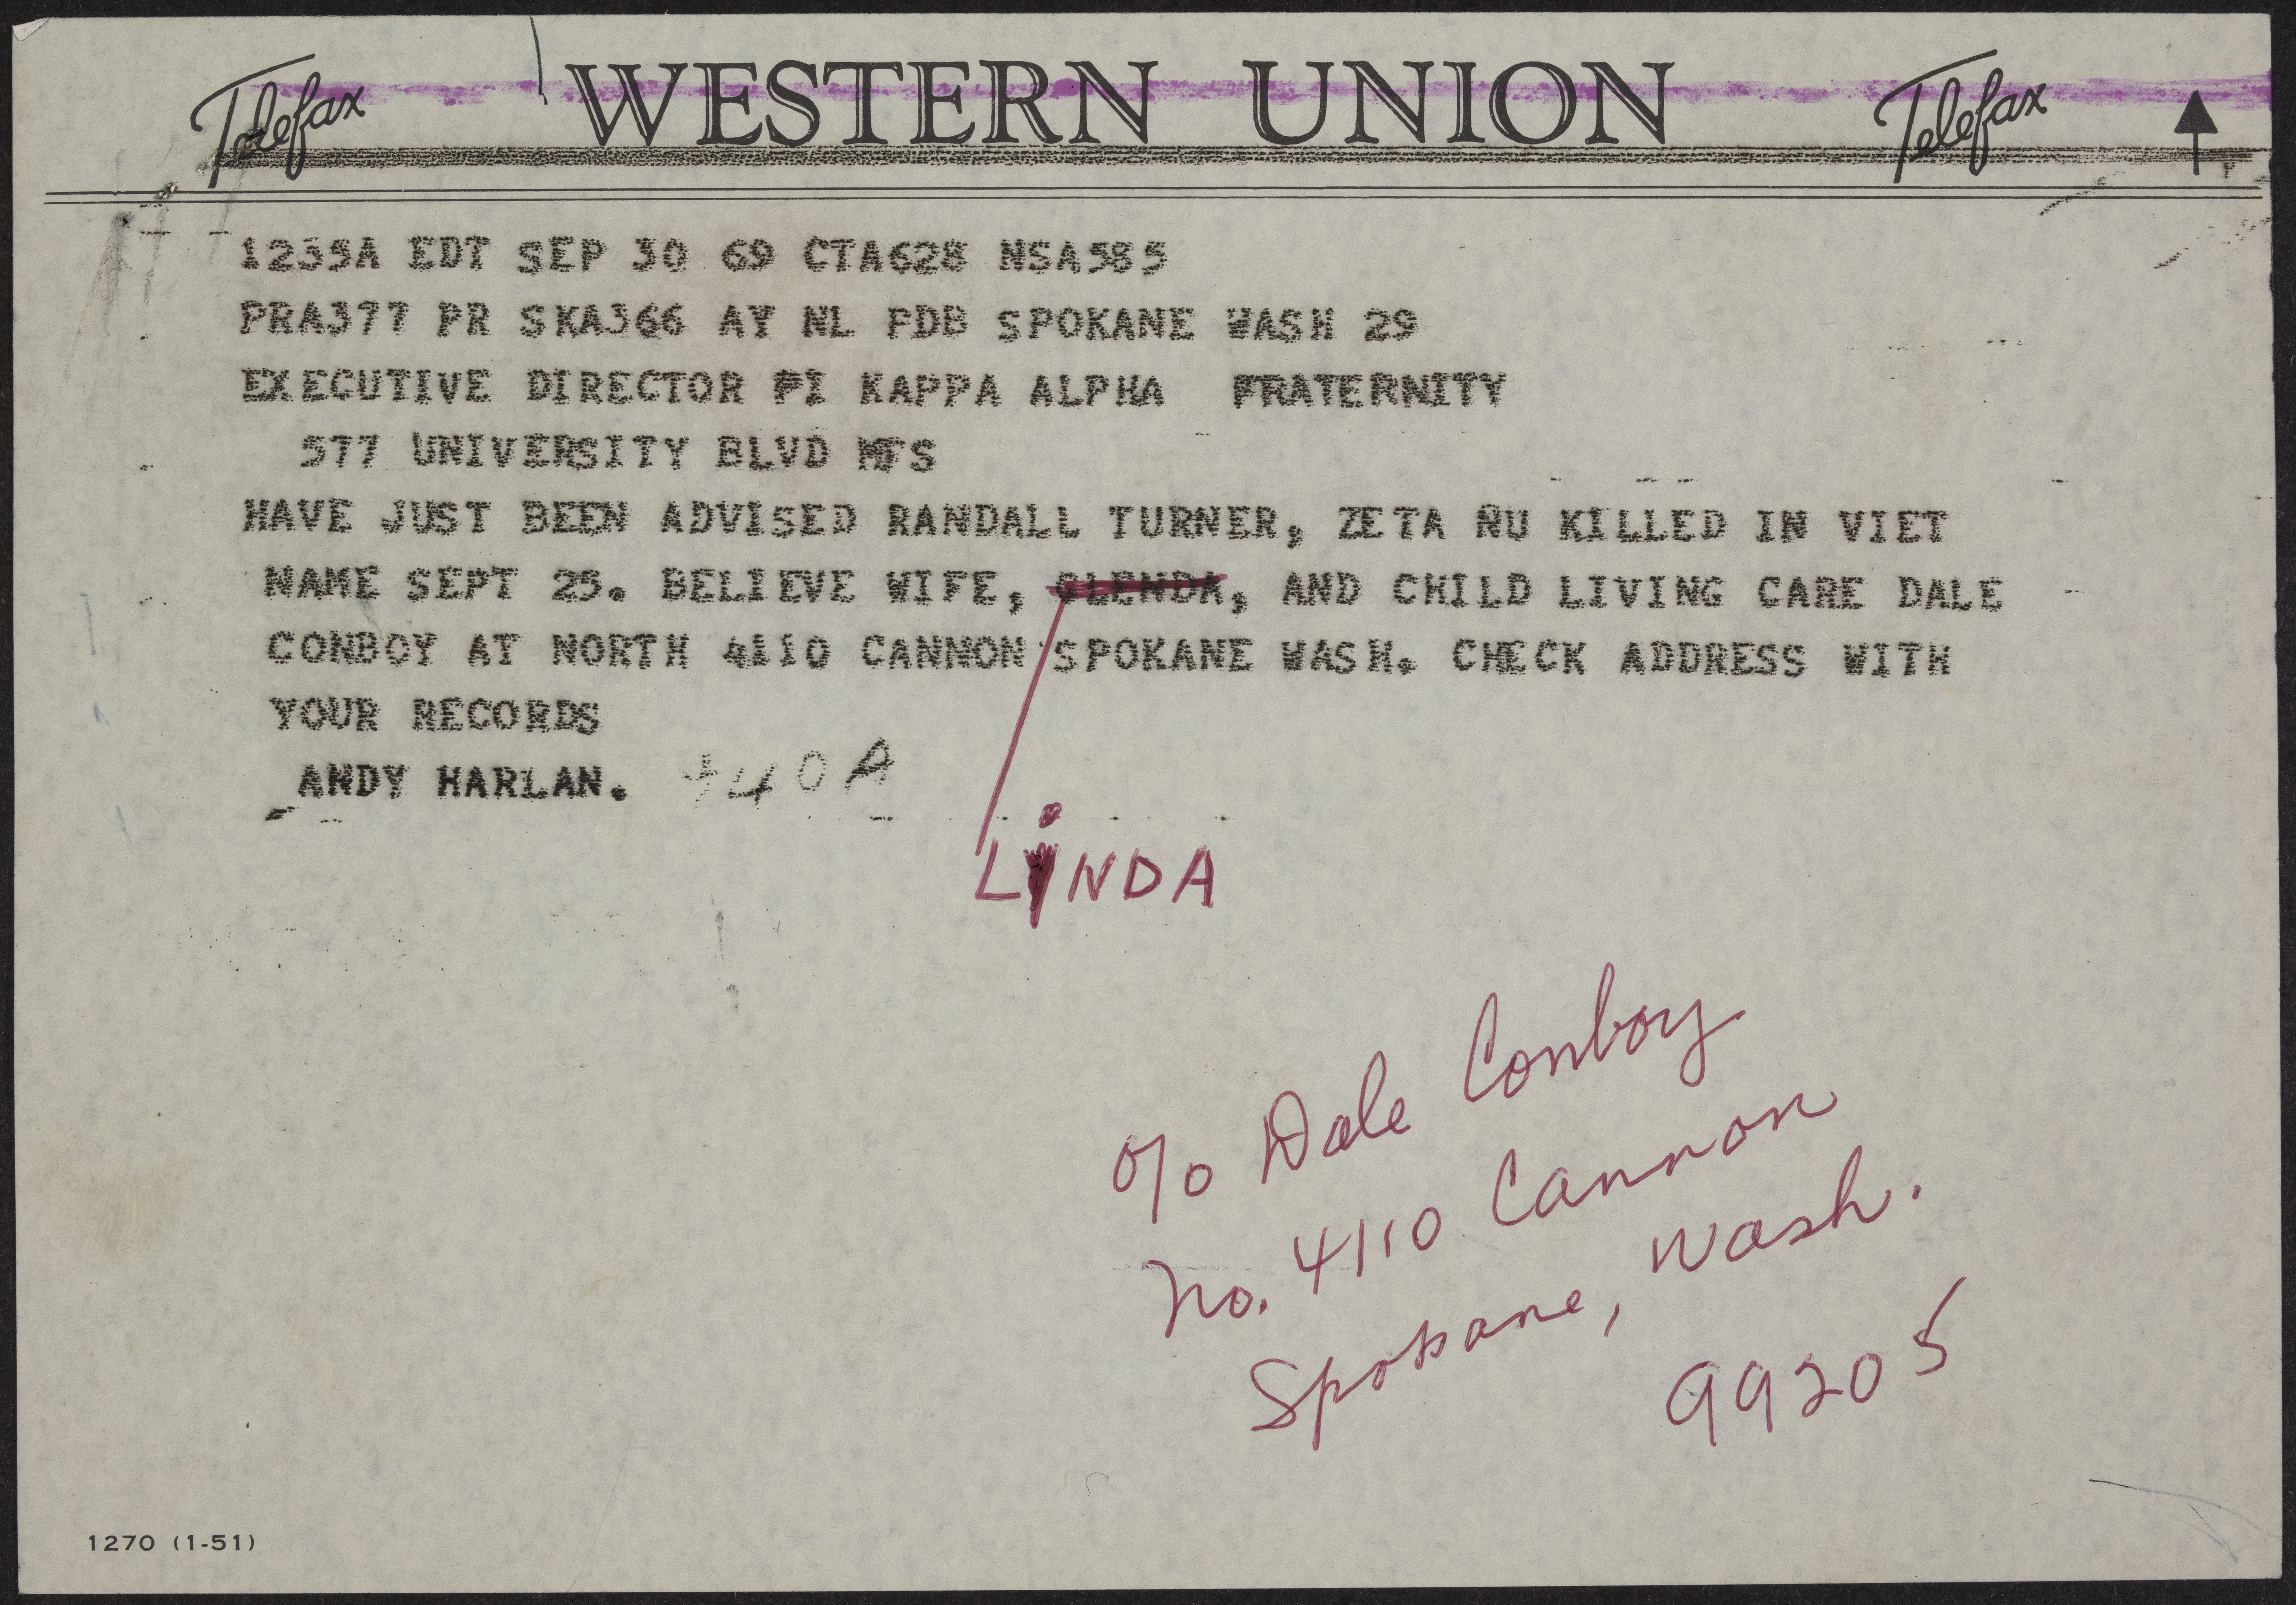 Telefax WESTERN UNION Telefax
1235A EDT SEP 30 69 CTA628 NSA585
PRA377 PR SKA366 AY NL PDB SPOKANE WASH 29
EXECUTIVE DIRECTOR PI KAPPA ALPHA FRATERNITY
577 UNIVERSITY BLVD MFS
HAVE JUST BEEN ADVISED RANDALL TURNER, ZETA NU KILLED IN VIET
NAME SEPT 25. BELIEVE WIFE, GLENDA, AND CHILD LIVING CARE DALE
CONBOY AT NORTH 4110 CANNON SPOKANE WASH. CHECK ADDRESS WITH
YOUR RECORDS
ANDY HARLAN. 740A
LiNDA
c/o Dale Conboy
No. 4110 Cannon
Spokane, Wash.
99205
1270 (1-51)